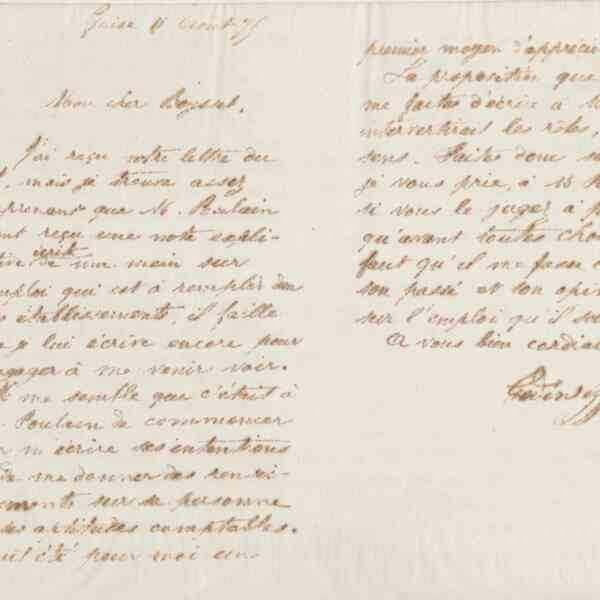 Guise 4 Août 75
Mon cher Boisset,
J'ai reçu votre lettre du
, mais je trouve assez
prenant que M. Poulain
nt reçu une note expli-
écrite
de ma main sur
mploi qui est à remplir dans
s établissements, il faille
e je lui écrive encore pour
ngager à me venir voir.
me semble que c'était à
. Poulain de commencer
r m'écrire ses intentions
de me donner des rensei-
ements sur sa personne
ses aptitudes comptables.
ut été pour moi un
premier moyen d'appréci
La proposition que
me faites d'écrire à M
intervertirait les rôles,
sens. Faites donc sa
je vous prie, à M
si vous le jugez à p
qu'avant toutes cho
faut qu'il me fasse c
son passé et son opin
sur l'emploi qu'il so
A vous bien cordia
Godin